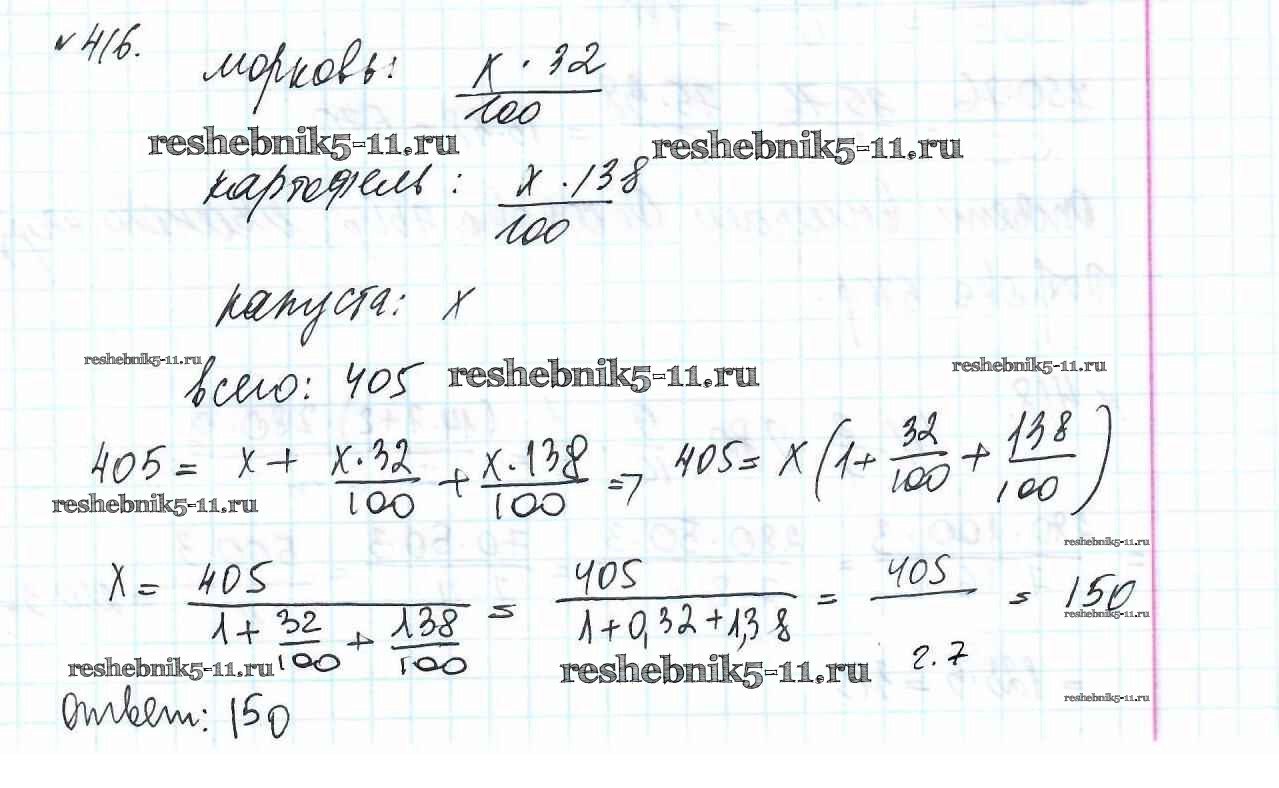 № 416.
морковь: x · 32 / 100
reshebnik5-11.ru reshebnik5-11.ru
картофель: x · 138 / 100
капуста: x
reshebnik5-11.ru
всего: 405 reshebnik5-11.ru reshebnik5-11.ru
405 = x + x·32/100 + x·138/100 => 405 = x (1 + 32/100 + 138/100)
reshebnik5-11.ru
reshebnik5-11.ru
x = 405 / (1 + 32/100 + 138/100) = 405 / (1 + 0,32 + 1,38) = 405 / 2.7 = 150
reshebnik5-11.ru
reshebnik5-11.ru reshebnik5-11.ru
reshebnik5-11.ru
ответ: 150